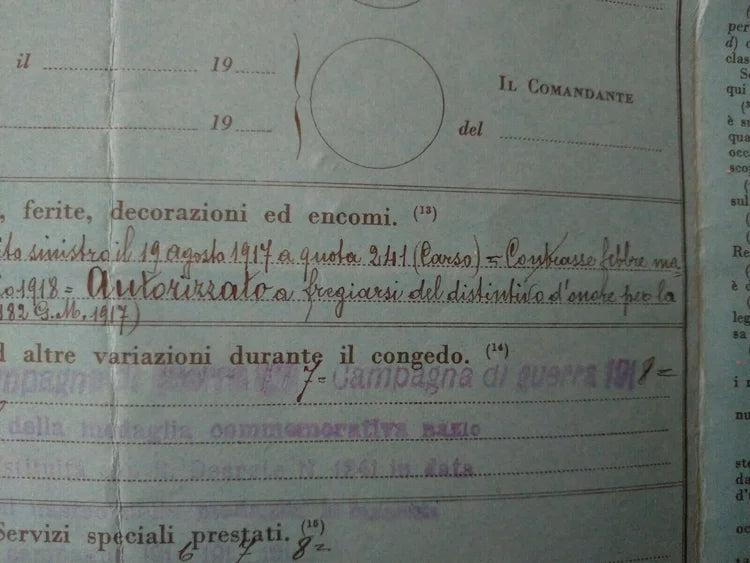 il 19
IL COMANDANTE
19
del
, ferite, decorazioni ed encomi. (13)
ito sinistro il 19 agosto 1917 a quota 241 (Carso) = Contrasse febbre ma=
io 1918 = Autorizzato a fregiarsi del distintivo d'onore per la
182 G.M. 1917)
d altre variazioni durante il congedo. (14)
ampagna di guerra 1917= Campagna di guerra 1918=
della medaglia commemorativa nazio
istituita R. Decreto N 1241 in data
Servizi speciali prestati. (15)
6 7 8=
per
d)
clas
qui
è su
qua
occ
scop
sul
Re
è d
leg
sa
i r
nu
ste
da
d'
oc